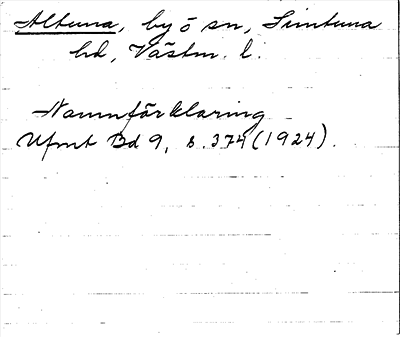 Altuna, by o sn, Simtuna
hd, Västm. l.
Namnförklaring
Ufmt Bd 9, s. 374 (1924).